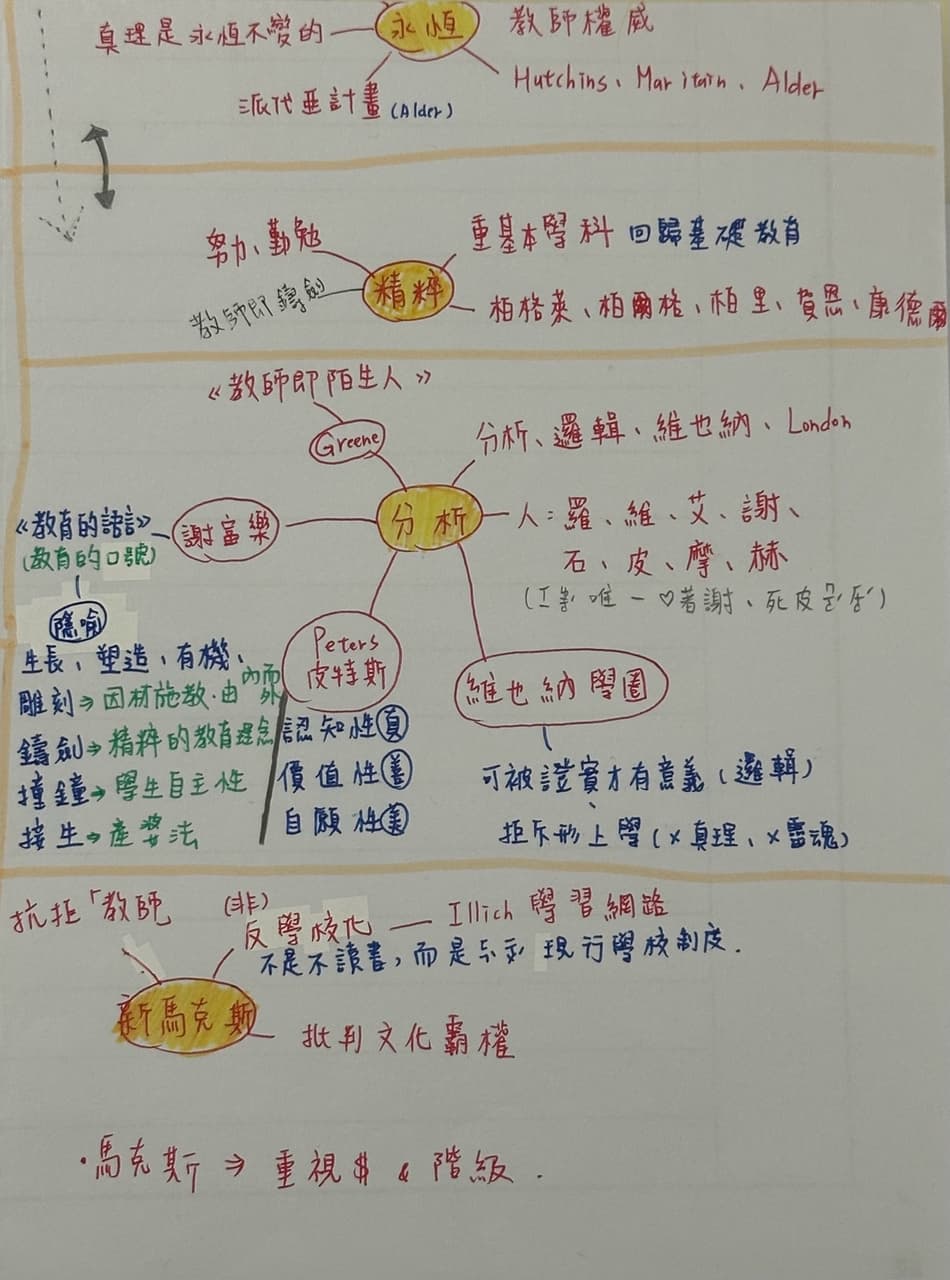 真理是永恆不變的
永恆
教師權威
Hutchins、Maritain、Alder
派代亞計畫 (Alder)
努力、勤勉
重基本學科 回歸基礎教育
精粹
教師即鑄劍
柏格萊、柏爾格、柏里、賀恩、康德爾
《教師即陌生人》
Greene
分析、邏輯、維也納、London
分析
人：羅、維、艾、謝、
石、皮、摩、赫
謝富樂
《教育的語言》
(教育的口號)
隱喻
生長、塑造、有機、
雕刻⇒因材施教.由內而外
鑄劍⇒精粹的教育理念
撞鐘⇒學生自主性
接生⇒產婆法
Peters
皮特斯
認知性 真
價值性 善
自願性 美
維也納學圈
可被證實才有意義(邏輯)
拒斥形上學(×真理、×靈魂)
抗拒「教師
(非)
反學校化 — Illich 學習網路
不是不讀書,而是 現行學校制度.
新馬克斯
批判文化霸權
·馬克斯⇒重視$ & 階級.